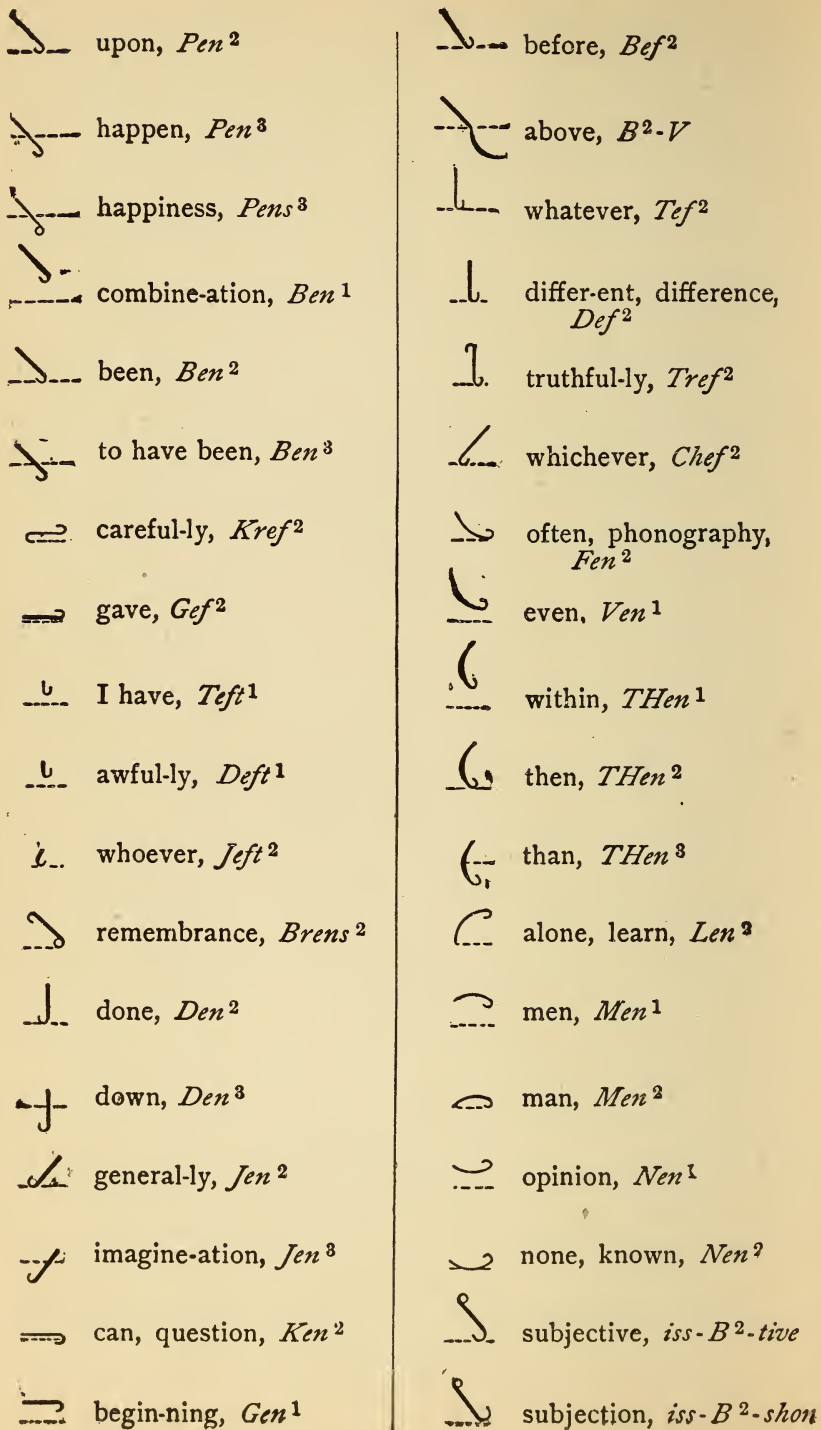 upon, Pen²
happen, Pen³
happiness, Pens³
combine-ation, Ben¹
been, Ben²
to have been, Ben³
careful-ly, Kref²
gave, Gef²
I have, Teft¹
awful-ly, Deft¹
whoever, Jeft²
remembrance, Brens²
done, Den²
down, Den³
general-ly, Jen²
imagine-ation, Jen³
can, question, Ken²
begin-ning, Gen¹
before, Bef²
above, B²-V
whatever, Tef²
differ-ent, difference,
Def²
truthful-ly, Tref²
whichever, Chef²
often, phonography,
Fen²
even, Ven¹
within, THen¹
then, THen²
than, THen³
alone, learn, Len²
men, Men¹
man, Men²
opinion, Nen¹
none, known, Nen²
subjective, iss-B²-tive
subjection, iss-B²-shon